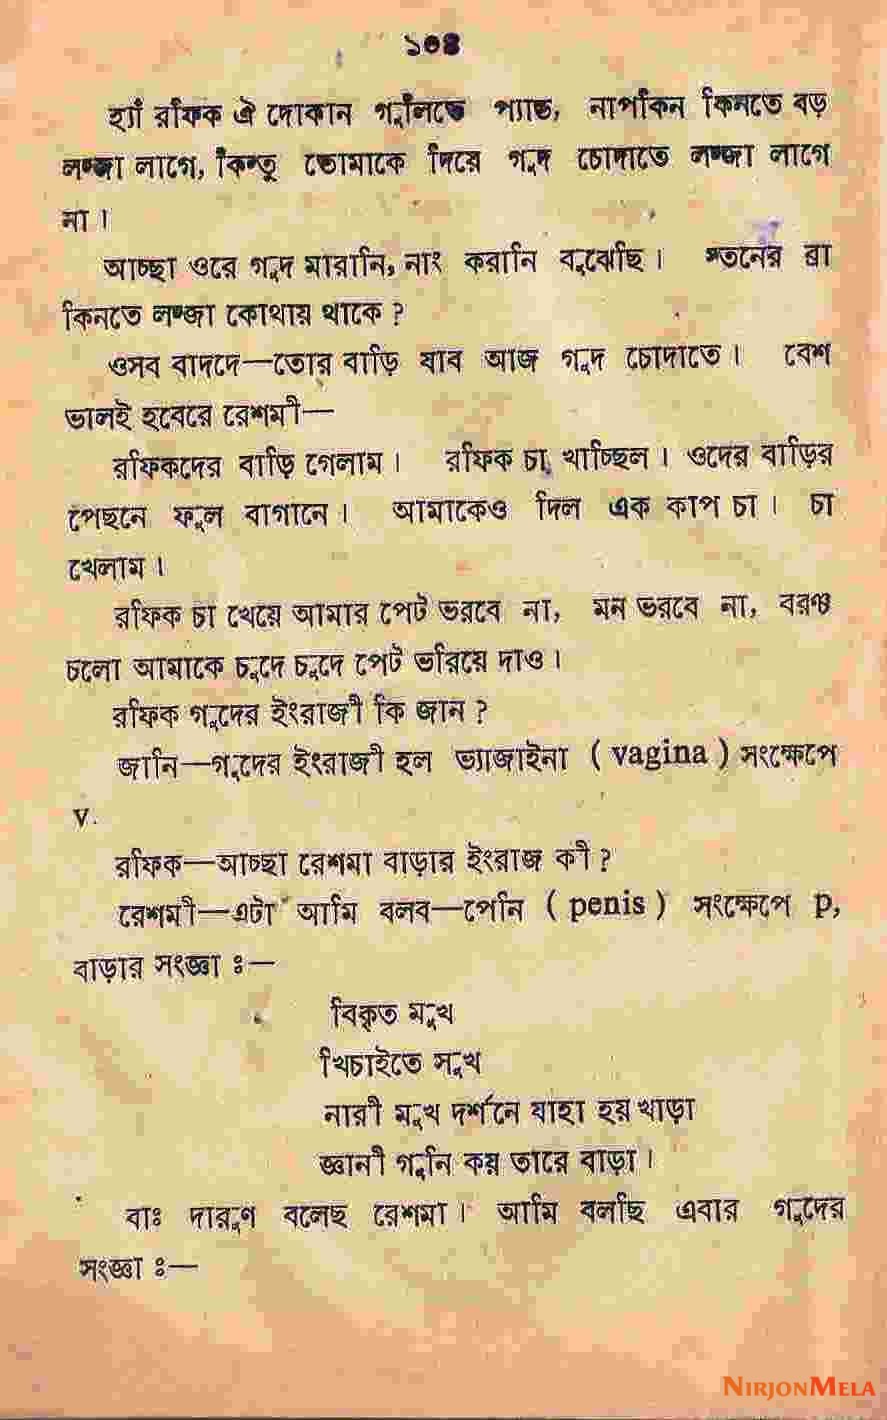 ১০৪
হ্যাঁ রফিক ঐ দোকান গুলিতে প্যান্ত, নাপকিন কিনতে বড়
লজ্জা লাগে, কিন্তু তোমাকে দিয়ে গুদ চোদাতে লজ্জা লাগে
না।
আচ্ছা ওরে গুদ মারানি, নাং করানি বুঝেছি। স্তনের ব্রা
কিনতে লজ্জা কোথায় থাকে ?
ওসব বাদদে—তোর বাড়ি যাব আজ গুদ চোদাতে। বেশ
ভালই হবেরে রেশমী—
রফিকদের বাড়ি গেলাম। রফিক চা খাচ্ছিল। ওদের বাড়ির
পেছনে ফুল বাগানে। আমাকেও দিল এক কাপ চা। চা
খেলাম।
রফিক চা খেয়ে আমার পেট ভরবে না, মন ভরবে না, বরঞ্চ
চলো আমাকে চুদে চুদে পেট ভরিয়ে দাও।
রফিক গুদের ইংরাজী কি জান ?
জানি—গুদের ইংরাজী হল ভ্যাজাইনা ( vagina ) সংক্ষেপে
v.
রফিক—আচ্ছা রেশমা বাড়ার ইংরাজ কী ?
রেশমী—এটা আমি বলব—পেনি ( penis ) সংক্ষেপে p,
বাড়ার সংজ্ঞা ঃ—
বিকৃত মুখ
খিচাইতে সুখ
নারী মুখ দর্শনে যাহা হয় খাড়া
জ্ঞানী গুনি কয় তারে বাড়া।
বাঃ দারুণ বলেছ রেশমা। আমি বলছি এবার গুদের
সংজ্ঞা ঃ—
NIRJONMELA